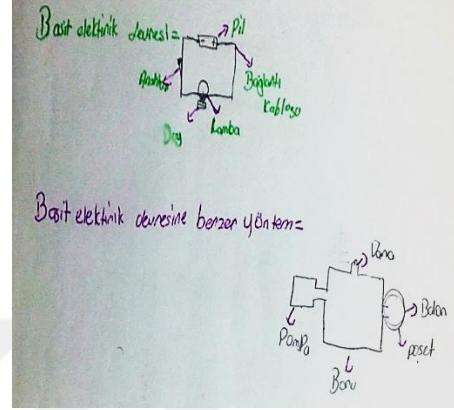 Basit elektirik devresi=
Pil
Anahtar
Bağlantı
kablosu
Duy
Lamba
Basit elektirik devresine benzer yöntem=
Vana
Balon
Pompa
poşet
Boru